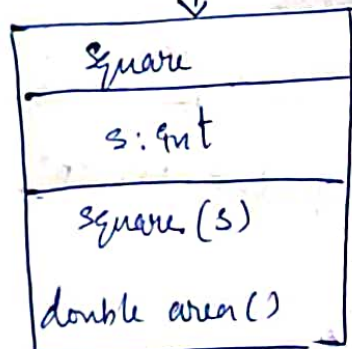 Square
s: int
square(s)
double area()